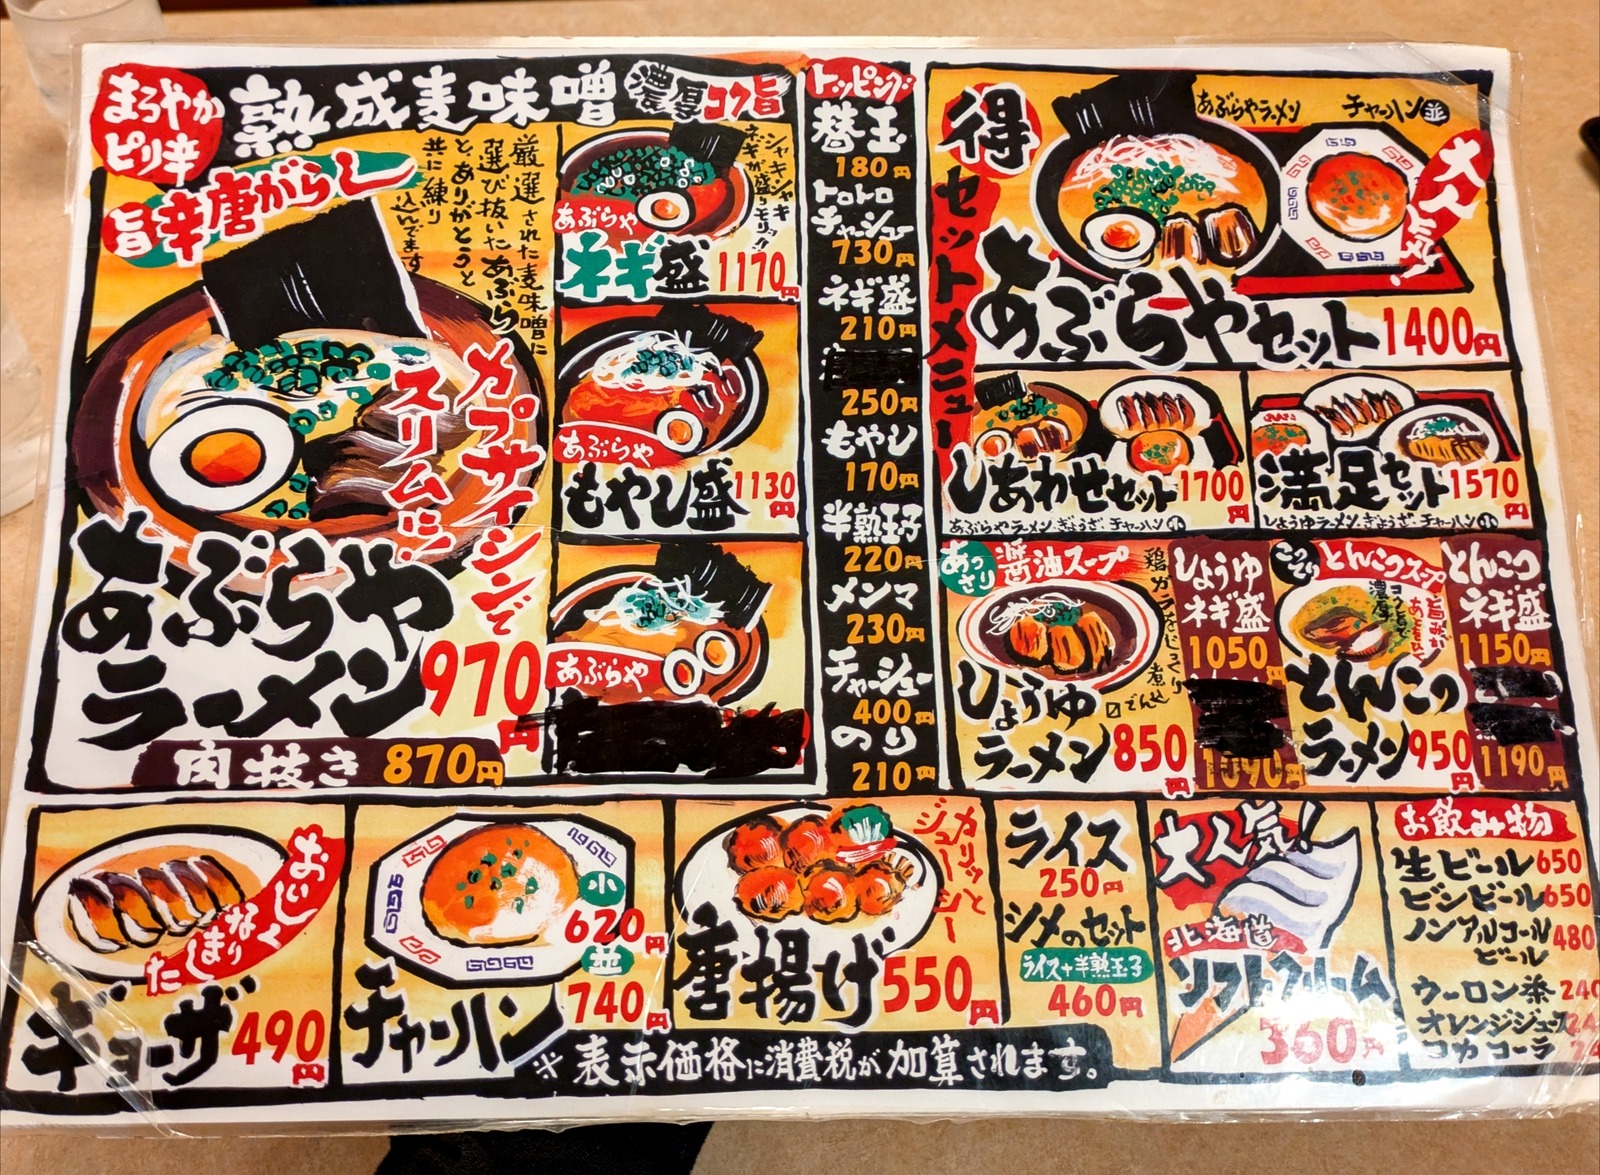 まろやか
ピリ辛
熟成麦味噌
濃厚コク旨
旨辛唐がらし
厳選された麦味噌に
選び抜いたあぶら
とありがとうと
共に練り
込んでます
カプサイシンで
スリムに
あぶらや
ラーメン
970円
肉抜き 870円
シャキシャキ
ネギが盛りモリッ!!
あぶらや
ネギ盛 1170円
あぶらや
もやし盛 1130円
あぶらや
トッピング
替玉
180円
トロトロ
チャーシュー
730円
ネギ盛
210円
250円
もやし
170円
半熟玉子
220円
メンマ
230円
チャーシュー
400円
のり
210円
得
セットメニュー
あぶらやラーメン
チャーハン並
大人気!
あぶらやセット 1400円
しあわせセット 1700円
あぶらやラーメン、ぎょうざ、チャーハン小
満足セット 1570円
しょうゆラーメン、ぎょうざ、チャーハン小
あっさり
醤油スープ
鶏ガラをじっくり煮込
んでム
しょうゆ
ラーメン 850円
しょうゆ
ネギ盛
1050円
1090円
こってり
とんこつスープ
濃厚
とんこつ
ラーメン 950円
とんこつ
ネギ盛
1150円
1190円
おいしく
なり
ました
ギョーザ 490円
小
620円
並
740円
チャーハン
カリッと
ジューシー
唐揚げ 550円
ライス
250円
シメのセット
ライス+半熟玉子
460円
大人気!
北海道
ソフトクリーム
360円
お飲み物
生ビール 650
ビンビール 650
ノンアルコール
ビール 480
ウーロン茶 240
オレンジジュース
コカコーラ
※表示価格に消費税が加算されます。